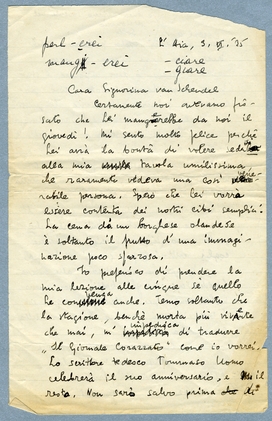 perl - erei L'Aia, 3. VI. '35
mang - erei - ciare
- giare
Cara Signorina van Schendel
Certamente noi avevamo fis-
sato che Lei mangerebbe da noi il
giovedì! Mi sento molto felice perchè
Lei avrà la bontà di volere
alla mia tavola umilissima
che raramente vedeva una così
rabile persona. Spero che Lei vorrà
essere contenta dei nostri cibi semplici.
La cena da un borghese olandese
è soltanto il frutto d'una immagi-
nazione poco sfarzosa.
Io preferisco di prendere la
mia lezione alle cinque se quello
Le convenga anche. Temo soltanto che
la stagione, benchè morta più viva
che mai, m'impedisca di tradurre
"Il Giornale Corazzato" come io vorrei.
Lo scrittore tedesco Tommaso Uomo
celebrerà il suo anniversario, e il
resto. Non sarò salvo prima di